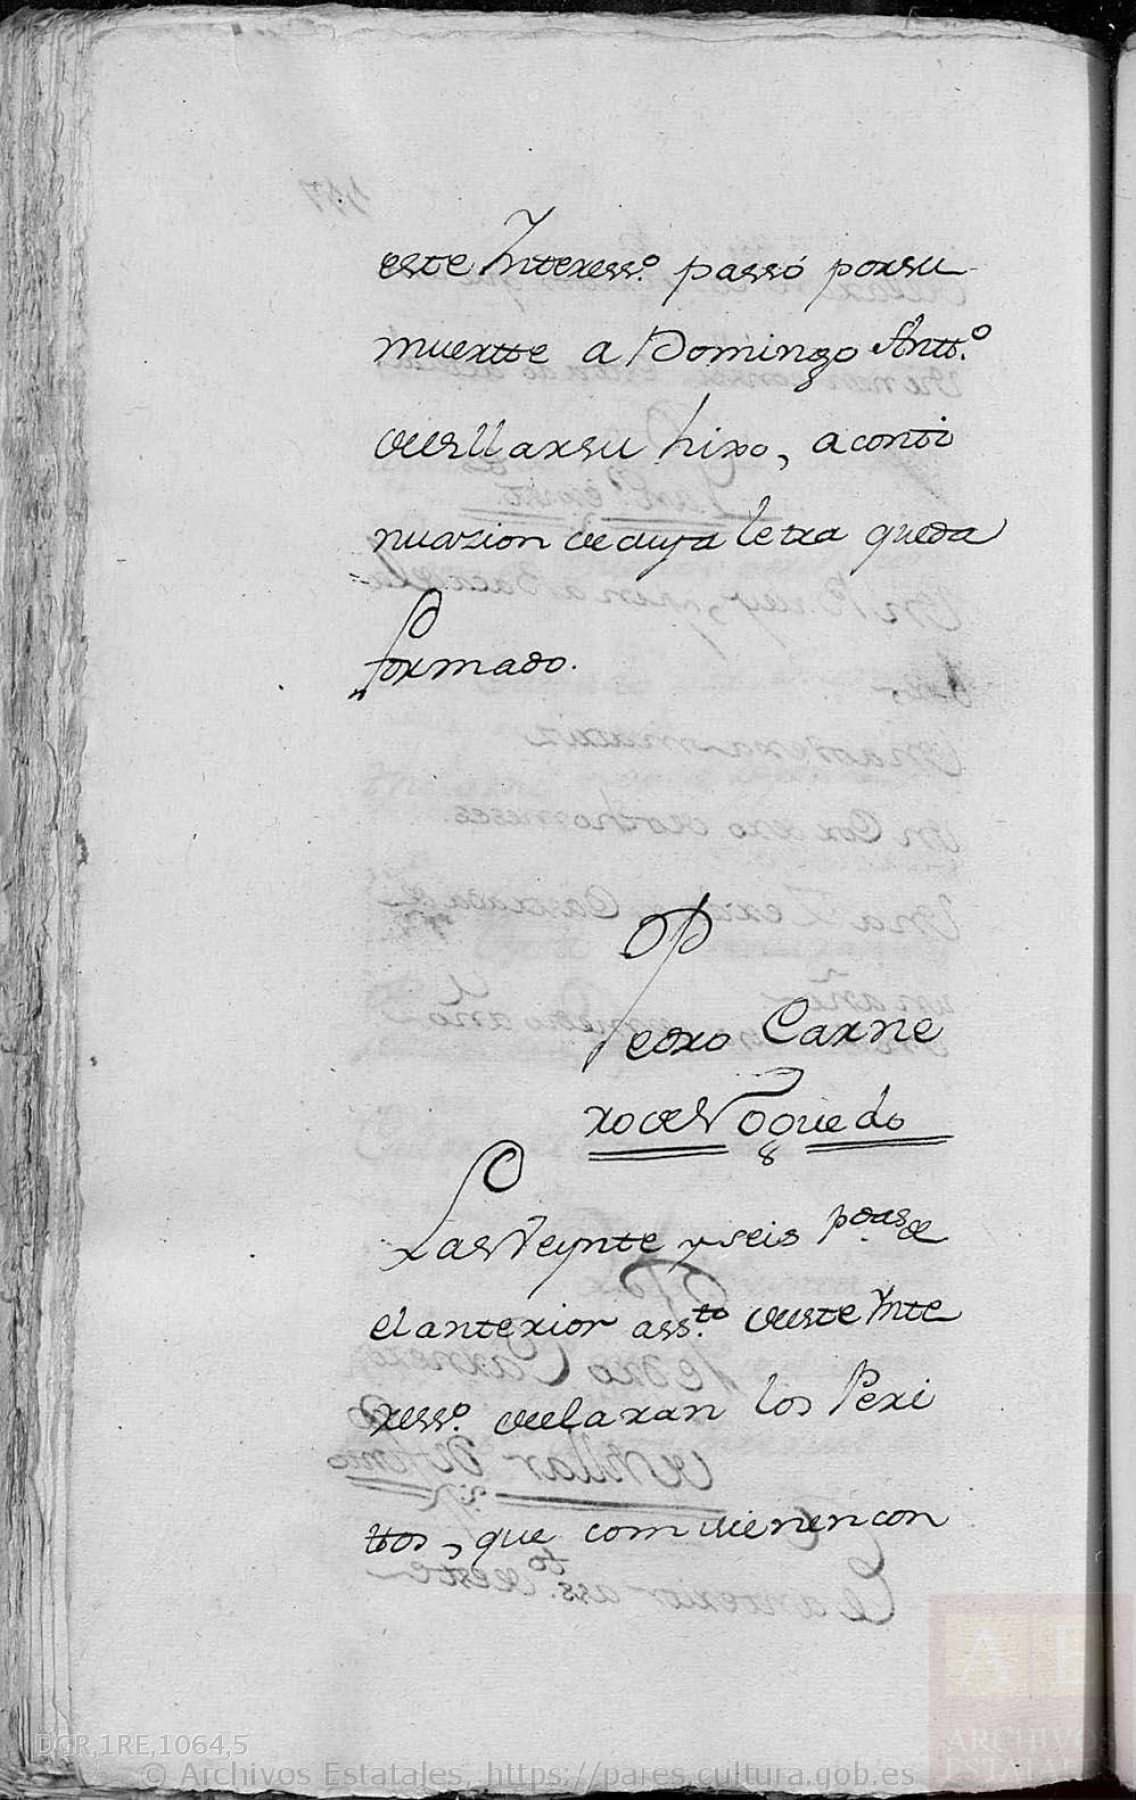 este Interess.º passó por su
muertte a Domingo Antt.º
de Villar su hixo, a conti
nuazion de cuya letra queda
formado.
Pedro Carne
ro de Noguedo
Las Veynte y seis p.das de
el anterior ass.tto de este Inte
ress.º declaran los Peri
ttos, que combienen con
DGR,1RE,1064,5
© Archivos Estatales, https://pares.cultura.gob.es
AE
ARCHIVOS
ESTATALES